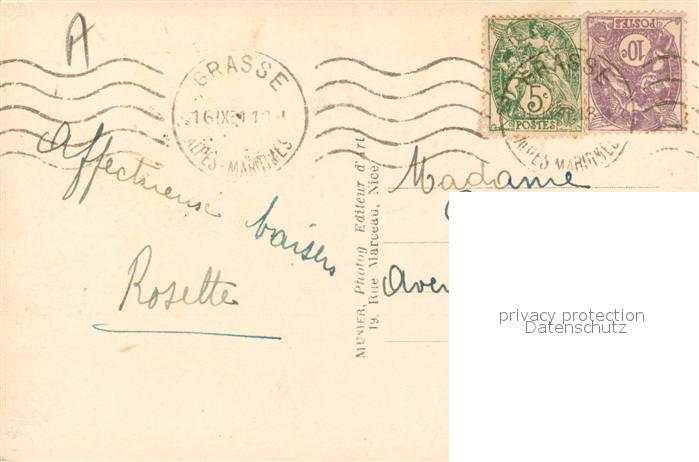 A
GRASSE
ALPES-MARITIMES
5c
POSTES
GRASSE
ALPES-MARITIMES
POSTES
10c
Affectueux baisers
Rosette
MUNIER, Photog Editeur d'Art
19, Rue Marceau, Nice
Madame
privacy protection
Datenschutz